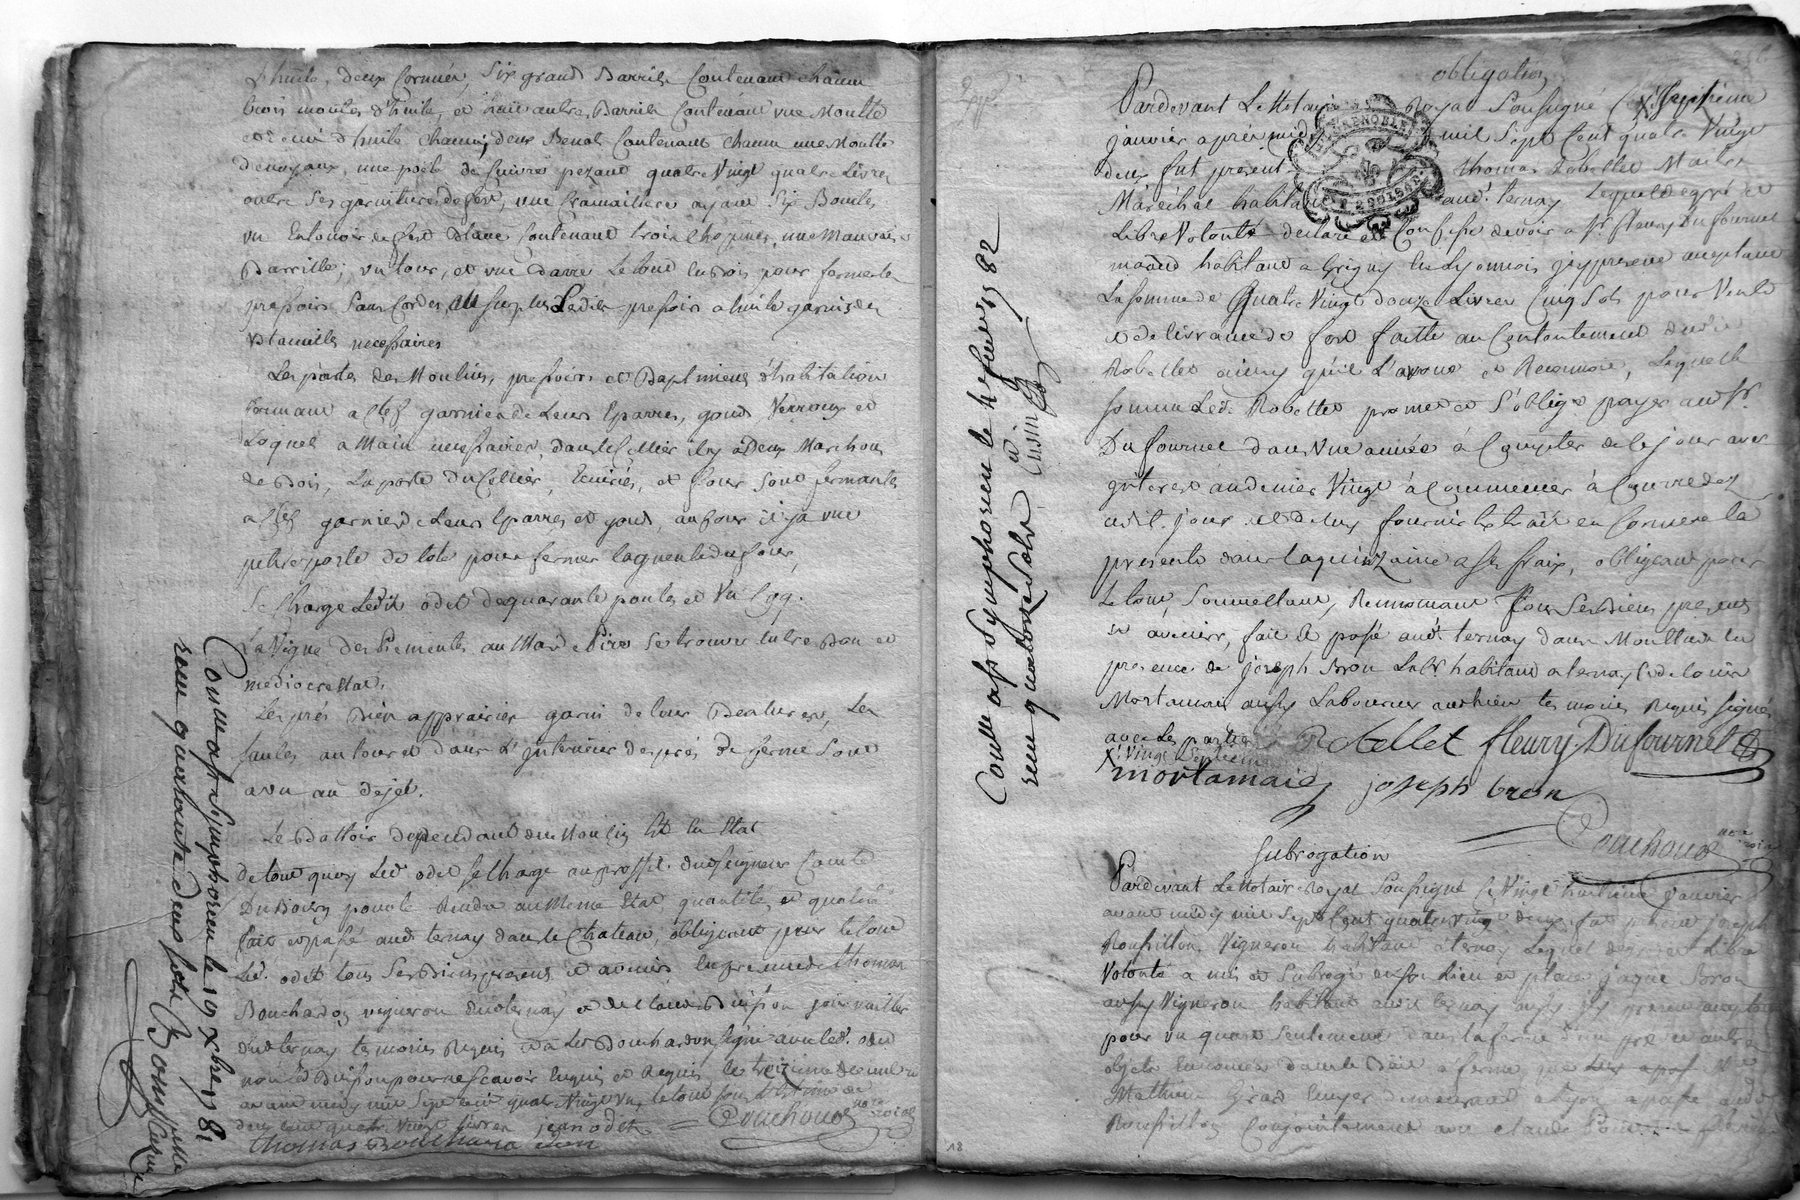 Lhuile, deux Cornues Six grands Barrils Contenant chacun
trois moutes d'huile, et huit autres Barrils Contenant une Moutte
et demi d'huile chacun, deux Benots Contenant chacun une Moutte
denoyaux, une poële de Cuivre pezant quatre Vingt quatre Livres
outre Ses garnitures de fert, une Cramailliere ayant Six Boucles
un Entonoir de fert Blanc Contenant trois chopines, une Mauvaise
Barrille, un tour, et une Barre Le tout en Bois pour fermer le
pressoir Sans Cordes, au surplus Ledit pressoir a huile garni des
Utancilles necessaires
Les portes des Moulins, pressoirs et Baptiments d'habitation
fermant a Clef garnies de Leurs Eparres, gonds Verroux et
Loquet a Main necessaires, dans le Cellier il y a Deux Marchons
de Bois, La porte du Cellier, Ecuries, et four Sont fermantes
a Clef garnie de Leurs Eparres et gonds, au four il y a une
petite porte de tole pour fermer la gueule du four,
Se Charge Ledit odet de quarante poules et Un Coq.
La Vigne des Piementes au Mas de Pire Se trouve entre Bon et
mediocre etat.
Les prés Bien appraisies garni de leur Bealieres, Les
saules autour et dans L'interieur des prés De ferme Sont
a vu au dejet.
Le Battoir dependant du Moulin Est En Etat
de tout quoy Led. odet se Charge au proffit dud. Seigneur Comte
Du Bourg pour le Rendre au Meme Etat, quantité, et qualité
fait et passé aud. ternay dans le Chateau, obligeant pour le tout
Led. odet tous Ses Biens presents et avenirs En presence de thomas
Bouchardon vigneron dud. ternay et de Claude Buisson journaillier
dud. ternay temoins Requis et a Led. Bouchardon signé avec led. odet
non led. Buisson pour ne Scavoir Enquis et Requis le treizieme decembre
avant midy mil Sept Cent quatre Vingt un, le tout sous
deux cent quatre Vingt livres jean odet Couchoud nore roial
thomas Bouchardon
Con.llé a St Simphorien le 19 Xbre 1781
recu quarante deux sols
Con.llé a St Symphorien le 4 fevrier 82
recu quatorze sols
obligation
Pardevant Le Notaire Royal Soussigné Ce X Septieme
janvier après midy mil Sept Cent quatre Vingt
deux fut present thomas Robellet Maitre
Maréchal habitant aud. ternay Lequel de gré et
Libre Volonté declare et Confesse devoir a Sr. fleury Dufournel
md. habitant a Grigny En Lyonnois icy present acceptant
La Somme de Quatre Vingt douze Livres Cinq Sols pour Vente
et delivrance de fert faitte au Contentement dudit
Robellet ainsy qu'il L'avoue et Reconnoit, Laquelle
somme Led. Robellet promet et S'oblige payer aud. Sr.
Dufournel dans Une année à Compter de Ce jour avec
interet au denier Vingt à Commencer à Courre dez
cedit jour et de luy fournir Extrait en Comere la
presente dans la quinzaine a Ses fraix, obligeant pour
Le tout, Soumettant, Renonceant tous Ses Biens presents
et avenirs, fait et passé aud. ternay dans Moultud. En
presence de joseph Bron Labr. habitant a ternay et de louis
Mortamais aussy Laboureur audit lieu temoins Requis signés
avec Les parties Robellet fleury Dufournel
X Vingt Septieme
mortamais joseph bron
Couchoud nore roial
Subrogation
Pardevant Le Notaire Royal Soussigné Ce Vingt huitieme Janvier
avant midy mil Sept Cent quatre vingt deux fut present joseph
Roussillon Vigneron habitant a ternay Lequel de gré et Libre
Volonté a mis et Subrogé en Son Lieu et place jaque Bron
aussy Vigneron habitant audit ternay aussy icy present acceptant
pour un quart Seulement dans la ferme d'un pré et autres
objets Enoncés dans le Bail a ferme que
Mathieu Girard Ecuyer demeurant a Lyon a passé aud.
Roussillon Conjointement avec claude
18